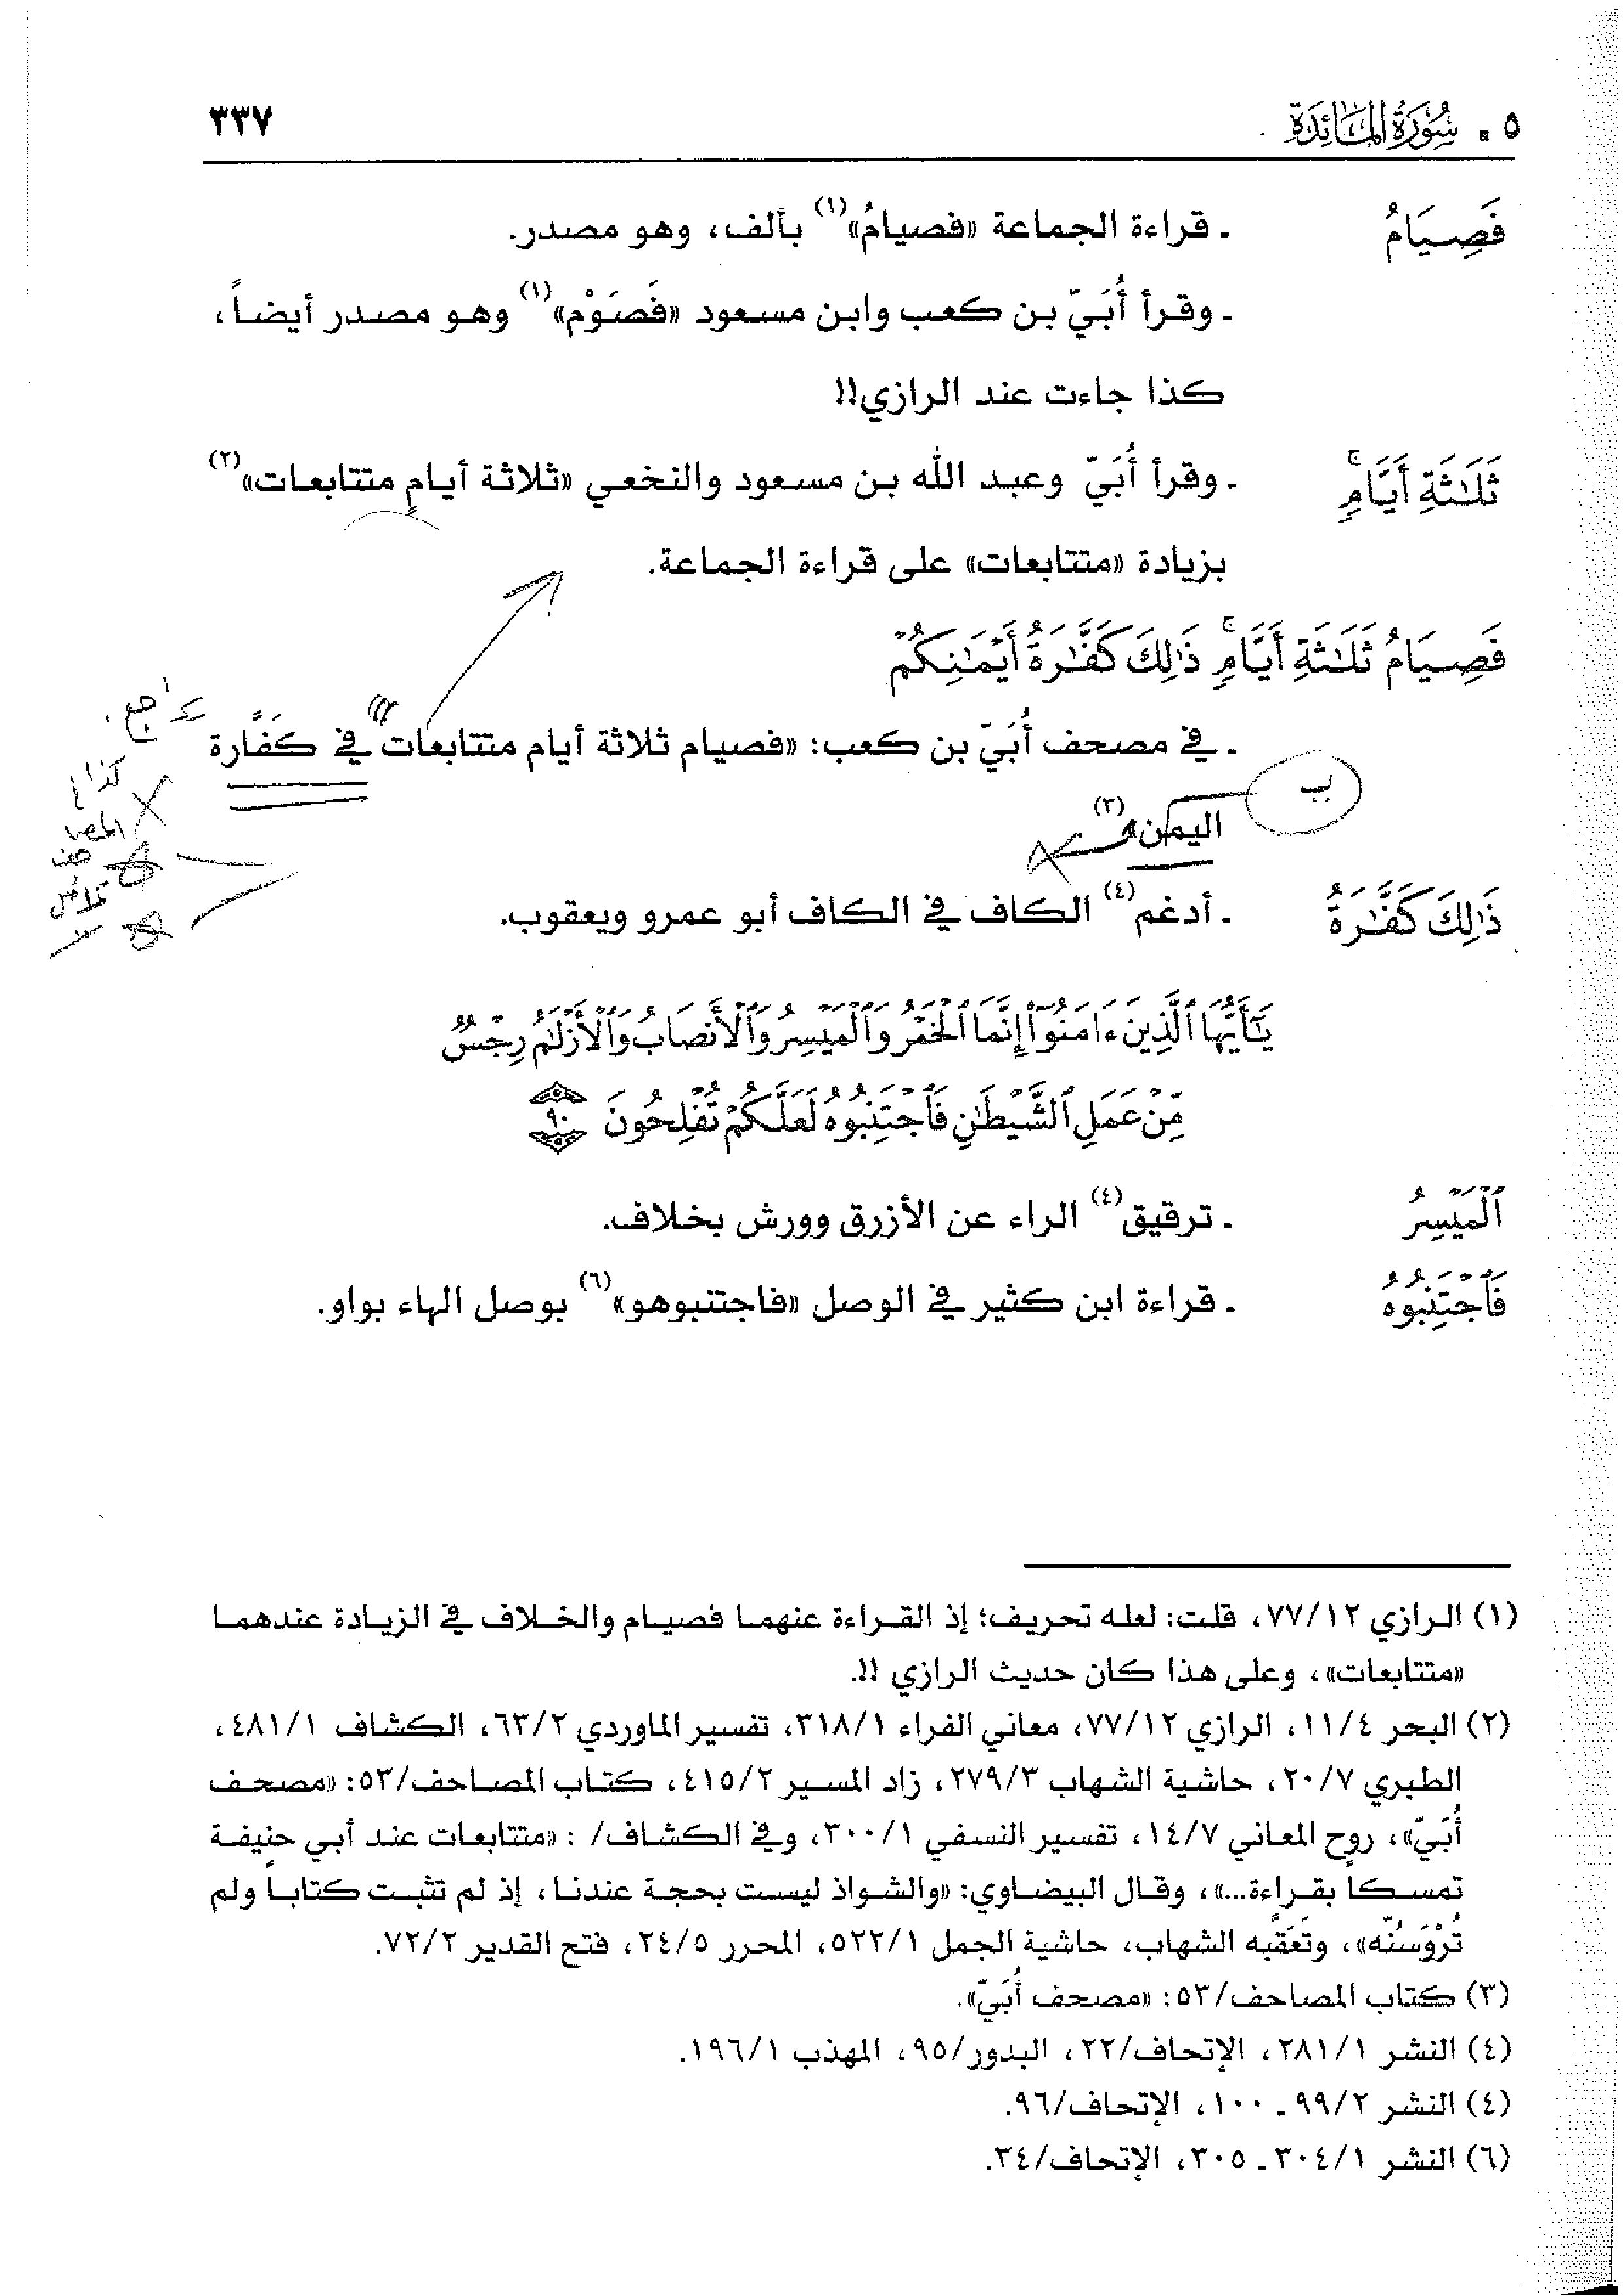 ٥ . سُورَةُ المَائِدَة ٣٣٧
فَصِيَامُ ـ قراءة الجماعة «فصيامُ»(١) بألف، وهو مصدر.
ـ وقرأ أُبَيّ بن كعب وابن مسعود «فَصَوْم»(١) وهو مصدر أيضاً،
كذا جاءت عند الرازي!!
ثَلَٰثَةِ أَيَّامٍۚ ـ وقرأ أُبَيّ وعبد الله بن مسعود والنخعي «ثلاثة أيامٍ متتابعات»(٢)
بزيادة «متتابعات» على قراءة الجماعة.
فَصِيَامُ ثَلَٰثَةِ أَيَّامٍۚ ذَٰلِكَ كَفَّٰرَةُ أَيْمَٰنِكُمْ
ـ في مصحف أُبَيّ بن كعب: «فصيام ثلاثة أيام متتابعات في كَفَّارة
اليمن»(٣)
ذَٰلِكَ كَفَّٰرَةُ ـ أدغم(٤) الكاف في الكاف أبو عمرو ويعقوب.
يَٰٓأَيُّهَا ٱلَّذِينَ ءَامَنُوٓاْ إِنَّمَا ٱلْخَمْرُ وَٱلْمَيْسِرُ وَٱلْأَنصَابُ وَٱلْأَزْلَٰمُ رِجْسٌ
مِّنْ عَمَلِ ٱلشَّيْطَٰنِ فَٱجْتَنِبُوهُ لَعَلَّكُمْ تُفْلِحُونَ ٩٠
ٱلْمَيْسِرُ ـ ترقيق(٤) الراء عن الأزرق وورش بخلاف.
فَٱجْتَنِبُوهُ ـ قراءة ابن كثير في الوصل «فاجتنبوهو»(٦) بوصل الهاء بواو.
(١) الرازي ٧٧/١٢، قلت: لعله تحريف؛ إذ القراءة عنهما فصيام والخلاف في الزيادة عندهما
«متتابعات»، وعلى هذا كان حديث الرازي !!.
(٢) البحر ١١/٤، الرازي ٧٧/١٢، معاني الفراء ٣١٨/١، تفسير الماوردي ٦٣/٢، الكشاف ٤٨١/١،
الطبري ٢٠/٧، حاشية الشهاب ٢٧٩/٣، زاد المسير ٤١٥/٢، كتاب المصاحف/٥٣: «مصحف
أُبَيّ»، روح المعاني ١٤/٧، تفسير النسفي ٣٠٠/١، وفي الكشاف/ : «متتابعات عند أبي حنيفة
تمسكاً بقراءة...»، وقال البيضاوي: «والشواذ ليست بحجة عندنا، إذ لم تثبت كتاباً ولم
تُرْوَ سُنّه»، وتَعَقَّبه الشهاب، حاشية الجمل ٥٢٢/١، المحرر ٢٤/٥، فتح القدير ٧٢/٢.
(٣) كتاب المصاحف/٥٣: «مصحف أُبَيّ».
(٤) النشر ٢٨١/١، الإتحاف/٢٢، البدور/٩٥، المهذب ١٩٦/١.
(٤) النشر ٩٩/٢ ـ ١٠٠، الإتحاف/٩٦.
(٦) النشر ٣٠٤/١ ـ ٣٠٥، الإتحاف/٣٤.